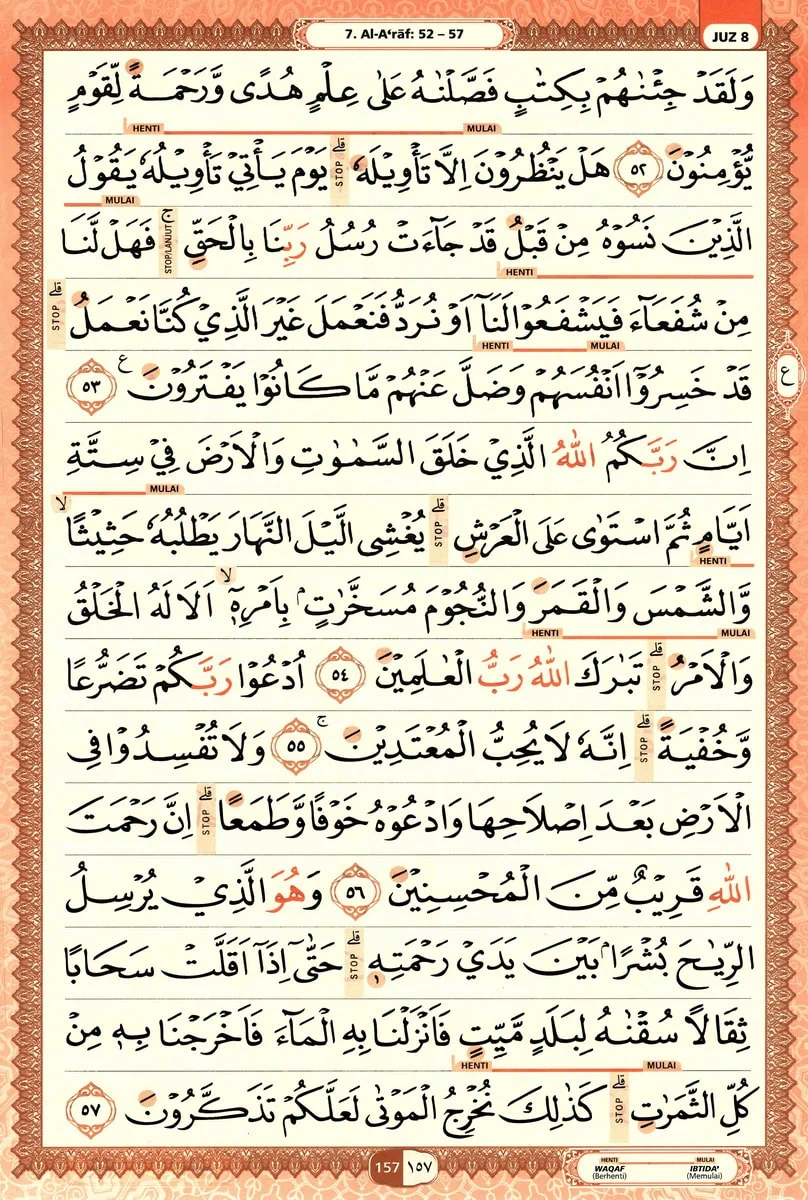 7. Al-A‘rāf: 52 – 57
JUZ 8
وَلَقَدْ جِئْنٰهُمْ بِكِتٰبٍ فَصَّلْنٰهُ عَلٰى عِلْمٍ هُدًى وَّرَحْمَةً لِّقَوْمٍ
HENTI MULAI
يُّؤْمِنُوْنَ ٥٢ هَلْ يَنْظُرُوْنَ اِلَّا تَأْوِيْلَهٗۗ يَوْمَ يَأْتِيْ تَأْوِيْلُهٗ يَقُوْلُ
STOP
MULAI
الَّذِيْنَ نَسُوْهُ مِنْ قَبْلُ قَدْ جَاۤءَتْ رُسُلُ رَبِّنَا بِالْحَقِّۚ فَهَلْ لَّنَا
STOP/LANJUT
HENTI
مِنْ شُفَعَاۤءَ فَيَشْفَعُوْا لَنَآ اَوْ نُرَدُّ فَنَعْمَلَ غَيْرَ الَّذِيْ كُنَّا نَعْمَلُۗ
STOP
HENTI MULAI
قَدْ خَسِرُوْٓا اَنْفُسَهُمْ وَضَلَّ عَنْهُمْ مَّا كَانُوْا يَفْتَرُوْنَ ࣖ ٥٣
ع
اِنَّ رَبَّكُمُ اللّٰهُ الَّذِيْ خَلَقَ السَّمٰوٰتِ وَالْاَرْضَ فِيْ سِتَّةِ
MULAI
اَيَّامٍ ثُمَّ اسْتَوٰى عَلَى الْعَرْشِۗ يُغْشِى الَّيْلَ النَّهَارَ يَطْلُبُهٗ حَثِيْثًاۙ
STOP
HENTI
وَّالشَّمْسَ وَالْقَمَرَ وَالنُّجُوْمَ مُسَخَّرٰتٍۢ بِاَمْرِهٖٓۙ اَلَا لَهُ الْخَلْقُ
HENTI MULAI
وَالْاَمْرُۗ تَبٰرَكَ اللّٰهُ رَبُّ الْعٰلَمِيْنَ ٥٤ اُدْعُوْا رَبَّكُمْ تَضَرُّعًا
STOP
وَّخُفْيَةًۗ اِنَّهٗ لَا يُحِبُّ الْمُعْتَدِيْنَۚ ٥٥ وَلَا تُفْسِدُوْا فِى
STOP
الْاَرْضِ بَعْدَ اِصْلَاحِهَا وَادْعُوْهُ خَوْفًا وَّطَمَعًاۗ اِنَّ رَحْمَتَ
STOP
اللّٰهِ قَرِيْبٌ مِّنَ الْمُحْسِنِيْنَ ٥٦ وَهُوَ الَّذِيْ يُرْسِلُ
الرِّيٰحَ بُشْرًاۢ بَيْنَ يَدَيْ رَحْمَتِهٖۗ حَتّٰىٓ اِذَآ اَقَلَّتْ سَحَابًا
STOP
ثِقَالًا سُقْنٰهُ لِبَلَدٍ مَّيِّتٍ فَاَنْزَلْنَا بِهِ الْمَاۤءَ فَاَخْرَجْنَا بِهٖ مِنْ
HENTI MULAI
كُلِّ الثَّمَرٰتِۗ كَذٰلِكَ نُخْرِجُ الْمَوْتٰى لَعَلَّكُمْ تَذَكَّرُوْنَ ٥٧
STOP
157 ١٥٧
HENTI MULAI
WAQAF IBTIDA'
(Berhenti) (Memulai)